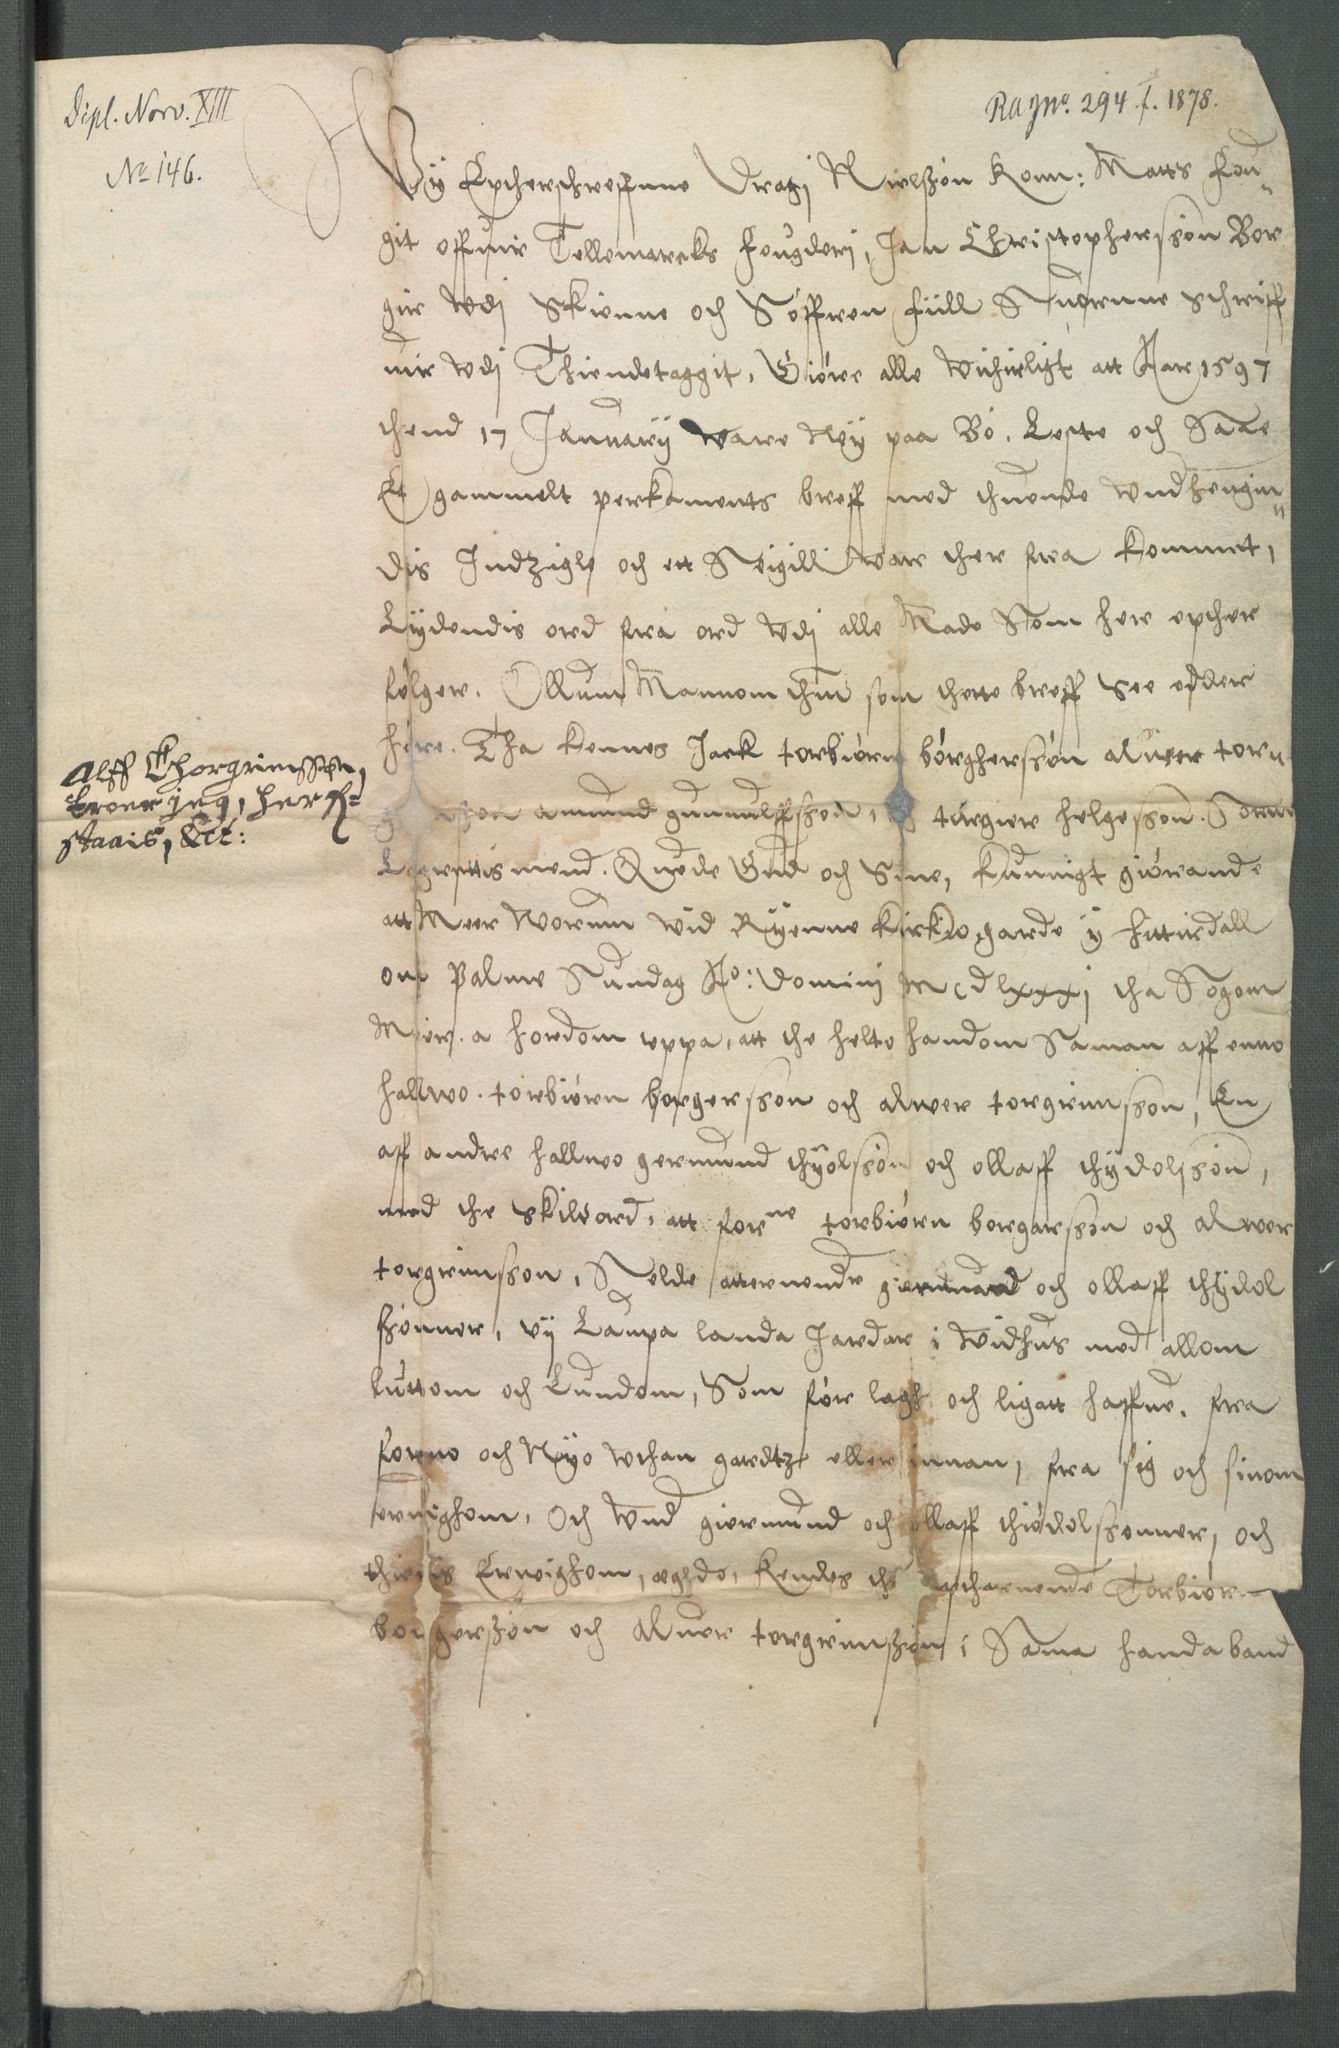 Dipl. Norv. XIII
No 146.
RA Jno. 294 f. 1878.
Wÿ Epcherschreffnne Dragj Nielssøn Konn: Matts Fou„
git offuir Tellemarcks Fougderj, Jan Christopherssøn Bor
gir vdj Skienne och Søffren Fiill Suornne schriff
uir vdj Thiendelaggit, Giøre alle vitirligt att Aar 1597
thend 17 Januarÿ vare Wÿ paa Bø, Leste och Saae
Et gammelt perkaments breff med thuende vndhengin„
dis Indzigle och ett Seigill vare ther fra kommit,
Lÿdendis ord fra ord vdj alle Made Som her epther
følger. Ollum Mannom thm som thette breff see edder
høre. Tha kennes Jach torbiørn børgherssøn aluer tor„
amund gunnulffsson, och targier helgesson. Sorne
Legrettis mend. Quede Gud och Sine, kunnigt giørande
att Meer Worum vid Rÿenne kirkiogarde ÿ hitterdall
om Palme Sundag Ao: Domini Mcdlxxxj tha Sogom
Meer. a hordom vppa, att the helte handom Saman aff enno
hallwo. torbiørn borgersson och alwer torgrimsson, En
aff andre hallwo germund thÿolssøn och ollaff thÿdolsson,
med the skilord, att forne torbiørn borgarsson och alwer
torgrimsson, Selde atternende giermund och ollaff thÿdol
ssønner, vÿ Laupa landa Jardar i Vidhus med allom
luttom och Lundom, Som før lagh och ligatt haffue. fra
forno och Nÿo vthan gardtz eller innan, fra sig och sinom
ervighom, Och Vnd giermund och ollaff thiødolssonner, och
thieris Erweighom, æghdo, kendes ths opthernende Torbiørn
borgerssøn och Aluer torgrimssøn i Sama handaband
Alff Thorgrimssøn,